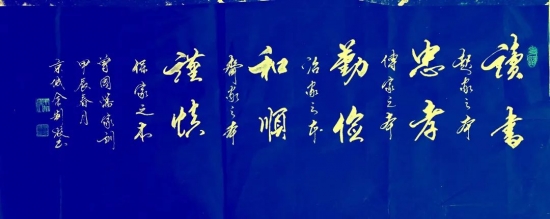 讀書
起家之本
忠孝
傳家之本
勤儉
治家之本
和順
齊家之本
謹慎
保家之本
曾國藩家訓
甲辰春月
京城